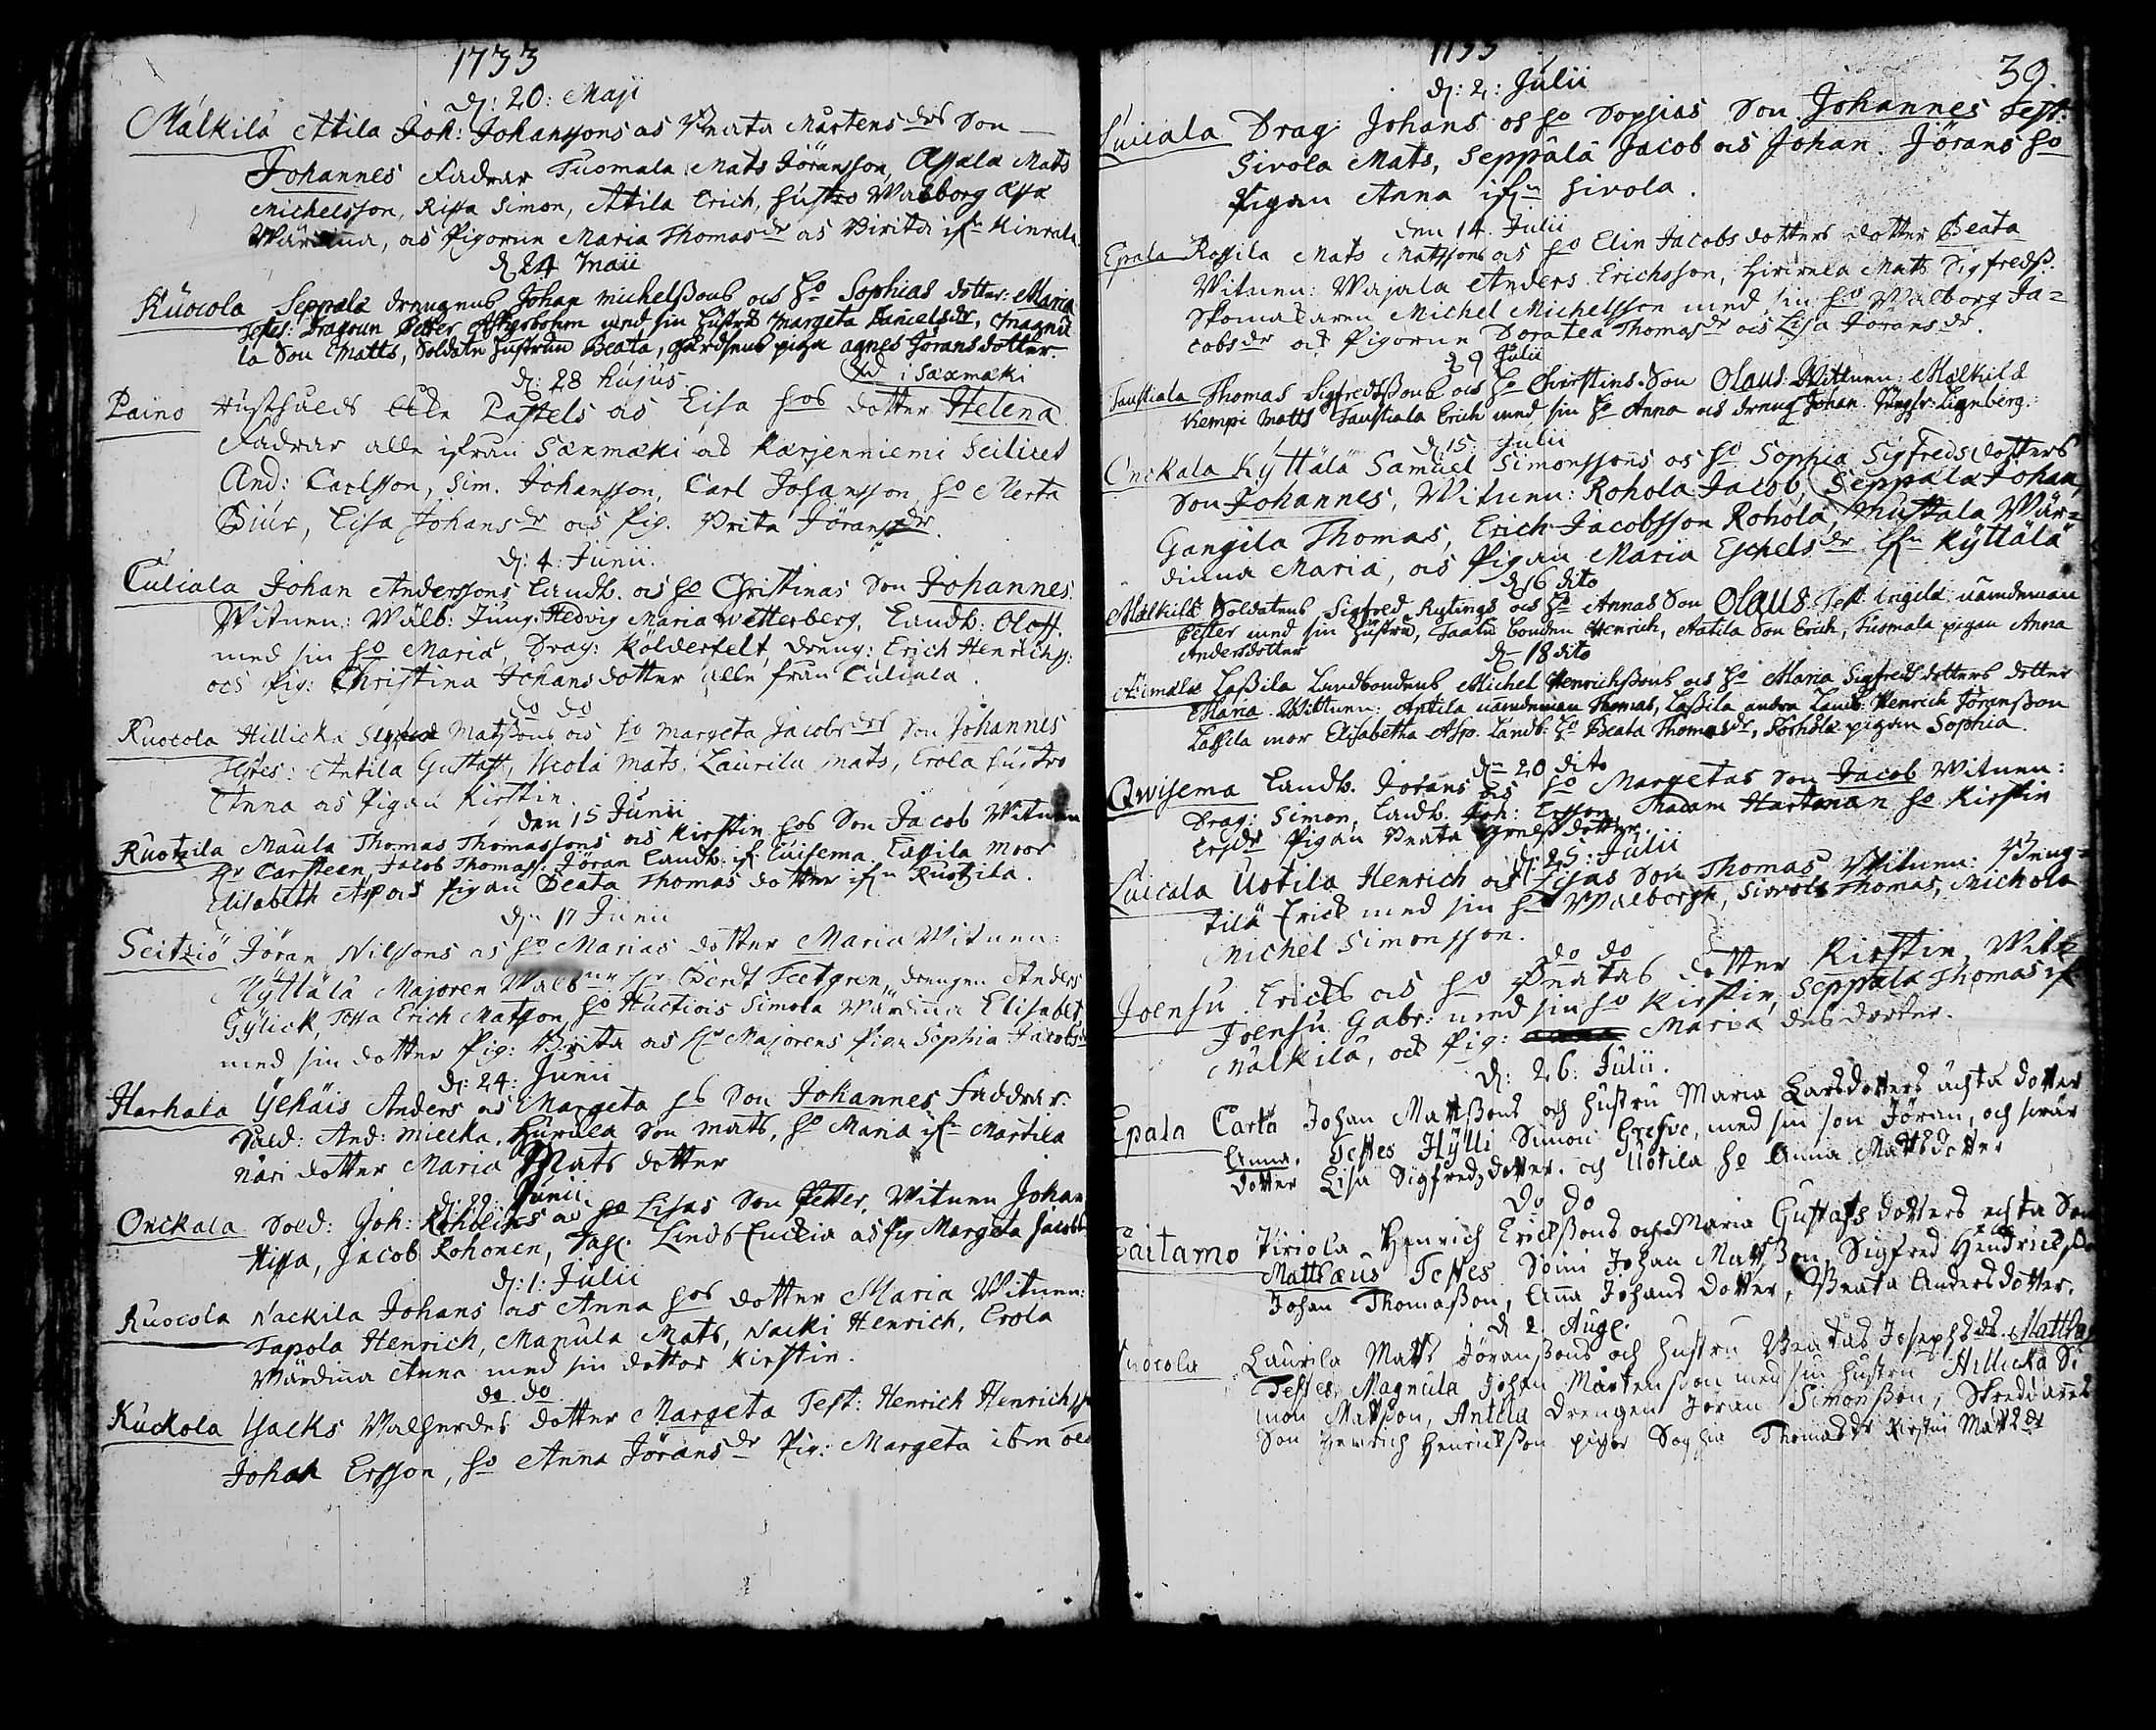 1733
d: 20: Maji
Målkila Attila Joh: Johanssons os Beata Mårtens drs Son
Johannes Fadrar Tuomala Mats Jöransson, Assala Mats
Michelsson, Rissa Simon, Attila Erich, hustro Walborg
Wärdinna, os Pigorne Maria Thomas dr os Birita ifn
d 24 Maii
Kuocola Seppälä drengens Johan Michelßons och Ho Sophias dotter: Maria
Testes: Dragoun Petter med sin hustru Margeta Danielsdr, Magnu
la Son Matts, Soldate hustrun Beata, gårdsens piga Agnes Jöransdotter.
d: 28 hujus.
i Saxmäki
Paino Lisa hos dotter Helena
Fadrar alle ifrån Saxmäki os Karjenniemi Scilicet
And: Carlsson, Sim. Johansson, Carl Johansson, ho Merta
Lisa Johans dr os Pig. Brita Jörans dr.
d: 4: Junii.
Culiala Johan Anderssons Landb. os ho Christinas Son Johannes.
Witnen: Wälb: Jung. Hedvig Maria Wetterberg, Landb: Oloff.
med sin ho Maria, Drag: Kölderfelt, dreng: Erich Henrichs:
och Pig: Christina Johans dotter alle från Culiala.
do do
Kuocola Hillicka Matssons os ho Margeta Jacobs drs Son Johannes
Testes: Antila Gustaff, Mats, Laurila Mats, Erola hustro
Anna os Pigan Kirstin.
den 15 Junii
Ruotzila Maula Thomas Thomassons os Kirstin hos Son Jacob Witnen
Hr Carsteen, Jacob Thomass: Jöran Landb. if Cuisema Lassila moor
Elisabeth Asp os Pigan Beata Thomas dotter ifn Ruotzila.
dn 17 Junii
Seitziö Jöran Nilssons os ho Marias dotter Maria Witnen:
Kyttälä Majoren Walb Hr Berdt Feetgren, drengen Anders
Gylick, Erich Matsson, ho Simola Wärdinna Elisabet
med sin dotter Pig: Brita os Hr Majorens Piga Sophia Jacobs
d: 24: Junii
Harhala Anders os Margeta hs Son Johannes Faddrar:
Sold: And: Miecka, Hurula Son Mats, ho Maria ifn Martila
näri dotter Maria Mats dotter
d: 29: Junii
Onckala Sold: Joh: os ho Lisas Son Petter, Witnen Johan
Hissa, Jacob Rohonen, Margeta Jacobs
d: 1: Julii
Kuocola Nackila Johans os Anna hos dotter Maria Witnen:
Tapola Henrich, Manula Mats, Nacki Henrich, Erola
Wärdinna Anna med sin dotter Kirstin.
do do
Kuckola Walherdes dotter Margeta Test: Henrich Henrichss
Johan Ersson, ho Anna Jörans dr Pig: Margeta
1733
39.
d: 2: Julii
Luicala Drag: Johans os ho Sophias Son Johannes Test:
Sivola Mats, Seppälä Jacob os Johan. Jörans ho
Pigan Anna ifn Sivola.
den 14 Julii
Epala Rossila Mats Matssons os ho Elin Jacobs dotters dotter Beata
Witnen: Wajala Anders Erichsson, Mats Sigfredß:
Skomakaren Michel Michelsson med sin ho Walborg Ja=
cobs dr och Pigorne Doratea Thomas dr os Lisa Jörans dr.
d 9 Julii
Taustiala Thomas Sigfredßons och Ho Cherstins Son Olaus. Wittnen: Mälkilä
Kempi Matts Taustiala Erich med sin Ho Anna och dreng Johan.
d 15 Julii
Onckala Kyttälä Samuel Simonssons os ho Sophia Sigfreds dotters
Son Johannes, Witnen: Rohola Jacob, Seppälä Johan,
Gangila Thomas, Erich Jacobsson Rohola, Mustala Wär=
dinna Maria, os Pigan Maria Eschels dr ifn Kyttälä
d 16 dito
Mälkilä Soldatens Sigfred Rytings och Ho Annas Son Olaus. Test: Ingilä nämdeman
Petter med sin hustru, bonden Henrich, Aatila Son Erich, Tuomala pigan Anna
Andersdotter
d 18 dito
Laßila Landbondens Michel Henrichßons och Ho Maria Sigfredsdotters dotter
Maria. Wittnen: Antila nämdeman Thomas, Laßila andra Landb: Henrich Jöranßon
Laßila mor Elisabetha Asp. Landb: Ho Beata Thomasdr, pigan Sophia.
dn 20 dito
Qwisema Landb. Jörans os ho Margetas Son Jacob Witnen:
Drag: Simon, Landb. Joh: Ersson, Hartman ho Kirstin
Ers dr Pigan Beata dotter.
d: 25: Julii
Luicala Uotila Henrich os Lisas Son Thomas Witnen: Peng=
tilä Erich med sin ho Walborgh, Sivola Thomas, Michola
Michel Simonsson.
do do
Joensu Erichs os ho Beatas dotter Kirstin, Witn
Joensu Gabr: med sin ho Kirstin, Seppälä Thomas if
Mälkilä, och Pig: Maria des dotter.
d: 26: Julii.
Epala Carta Johan Matßons och hustru Maria Larsdotters ächta dotter
Anna. Testes Hylli Simon Grefve, med sin son Jöran, och
dotter Lisa Sigfredsdotter. och Uotila ho Anna Mattsdotter
Do Do
Partamo Tiriola Henrich Erichßons och Maria Gustafs dotters echta Son
Matthæus Testes Soini Johan Matßon, Sigfred Hendrichß
Johan Thomaßon, Anna Johans dotter, Beata Anders dotter.
d 2 Aug:
Kuocola Laurila Matts Jöranßons och hustru Beatas Josephs ds. Matths
Testes. Magnula Johan Mårtensson med sin hustru Hillicka Si
mon Matßon, Antila drengen Jöran Simonßon, Skreddarens
Son Henrich Henrichßon pigor Sophia Thomas dr Kirstin Mats dr